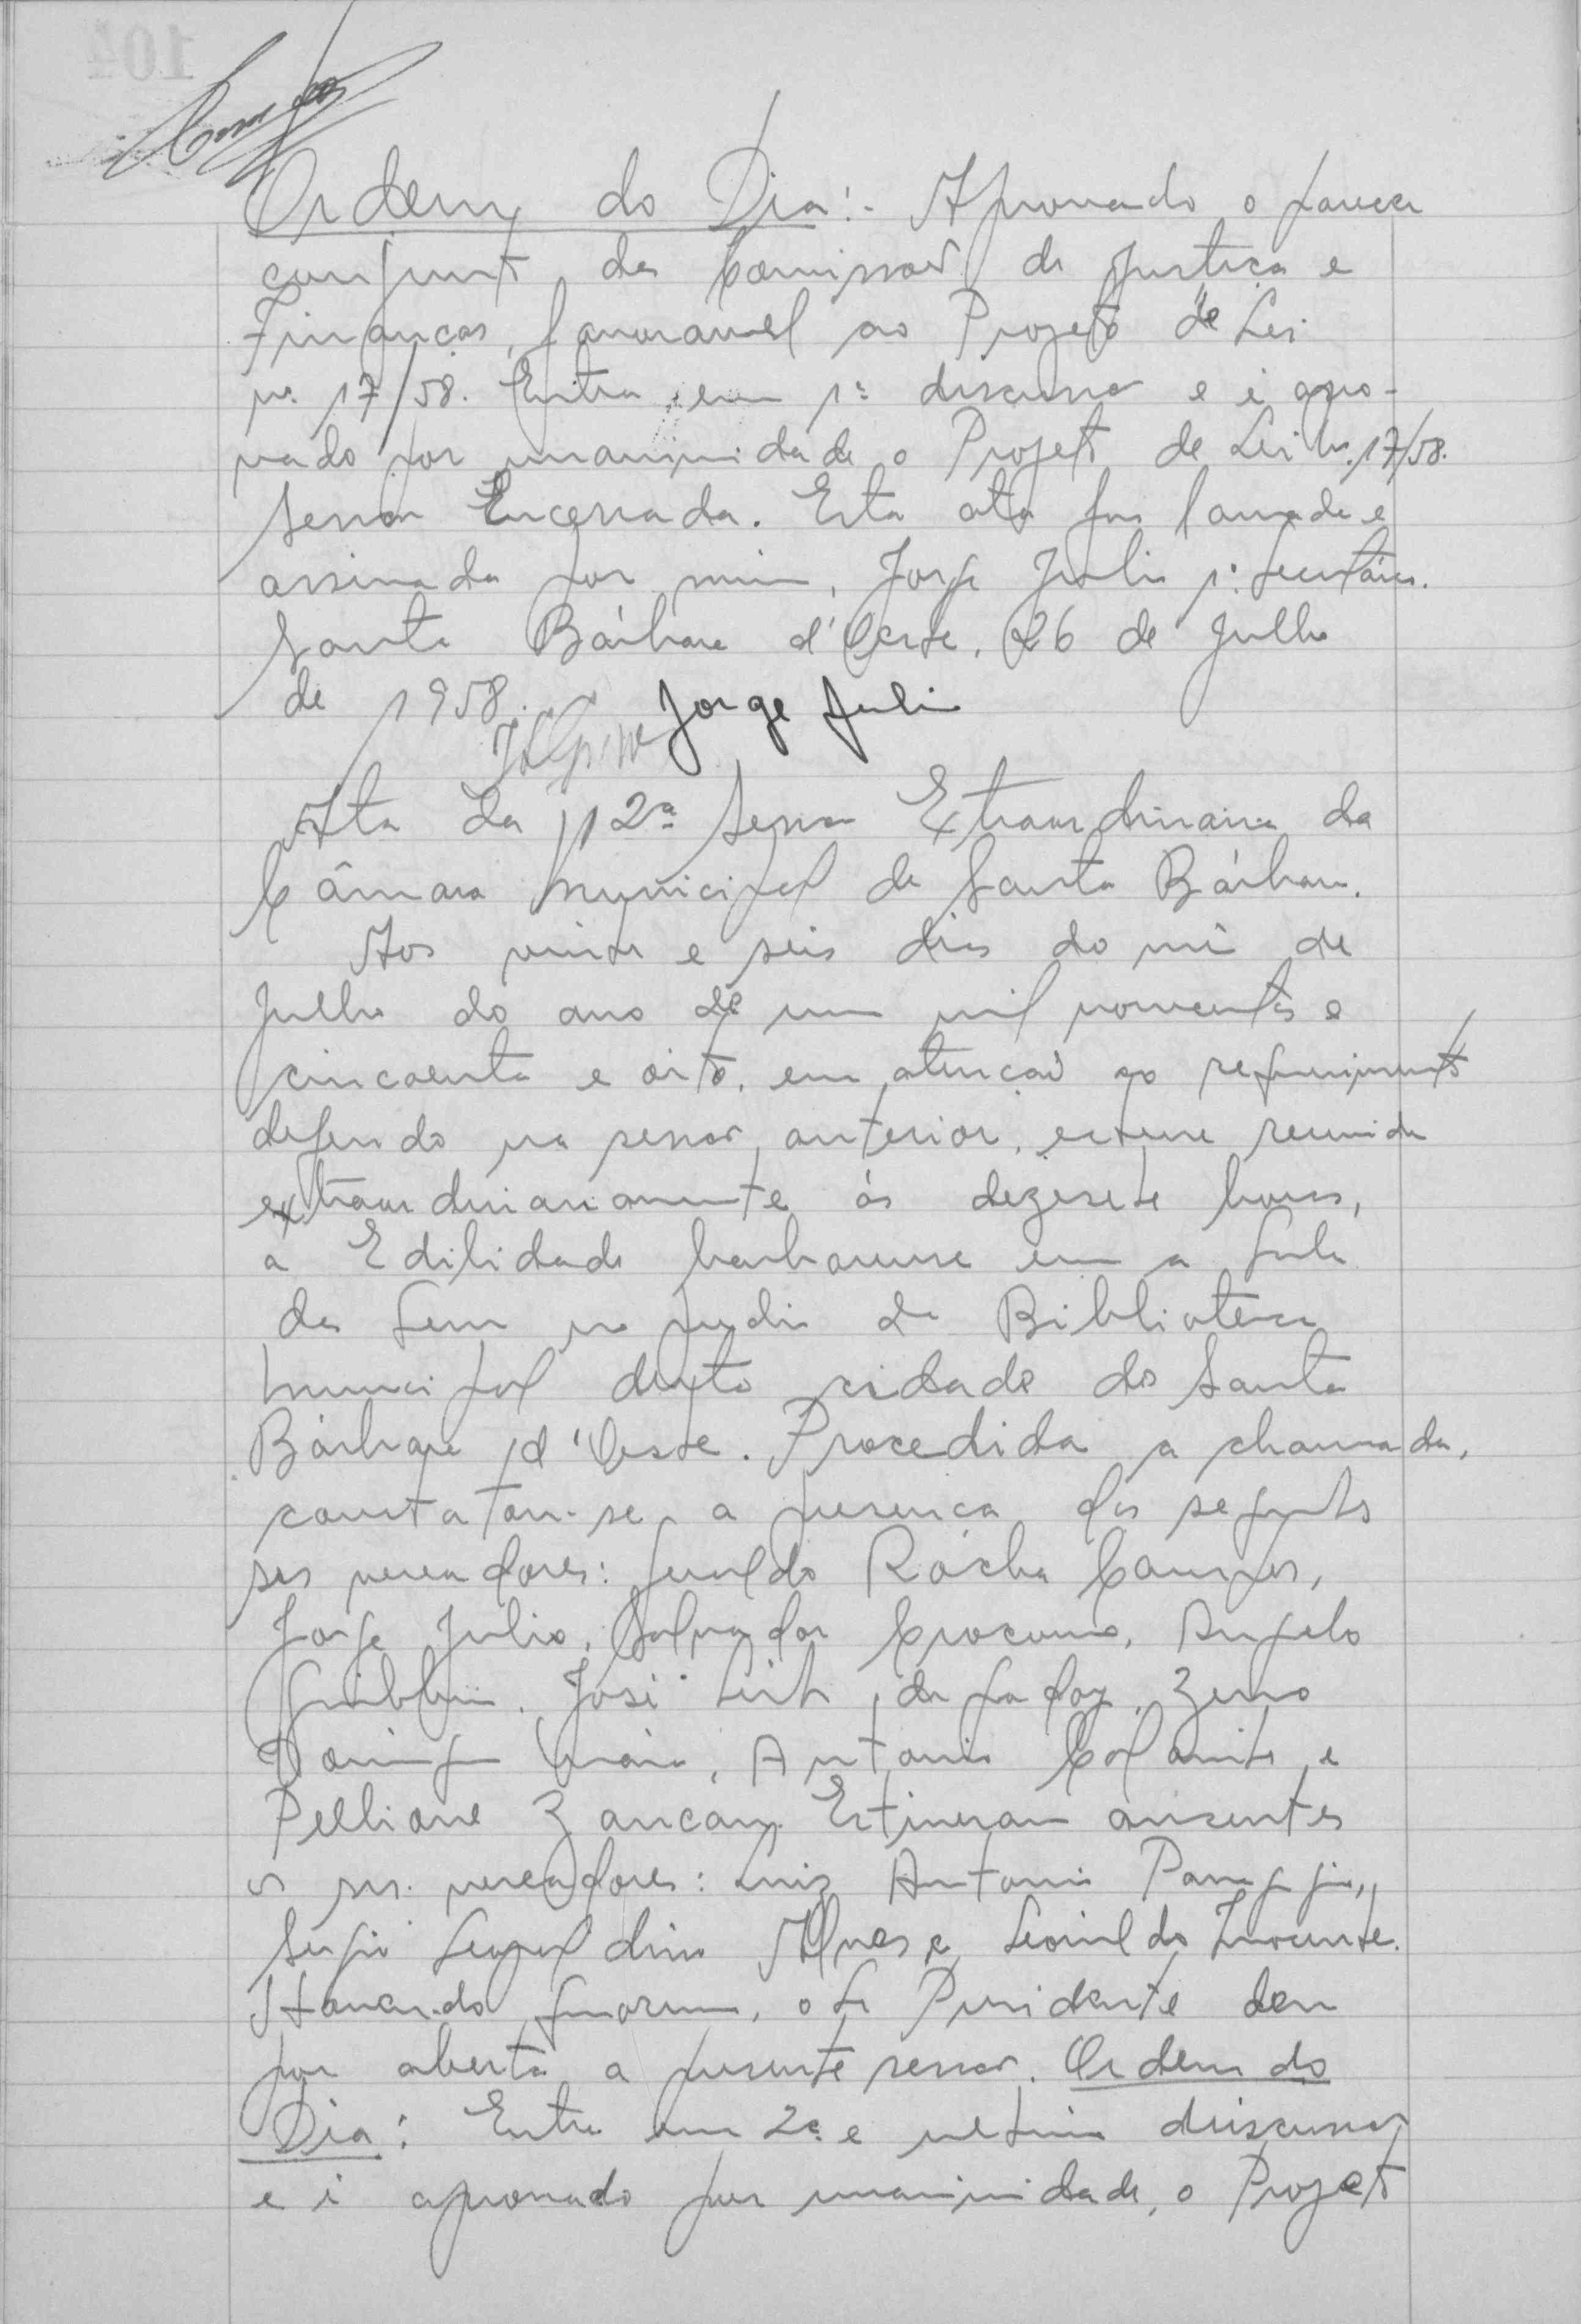 Ordem do Dia:- Aprovado o parecer
conjunto das Comissões de Justiça e
Finanças, favoravel ao Projeto de Lei
nº 17/58. Entra em 1ª discussão e é apro-
vado por unanimidade o Projeto de Lei nº 17/58.
Sessão Encerrada. Esta ata foi lavrada e
assinada por mim, Jorge Julio 1º Secretário.
Santa Bárbara d'Oeste, 26 de Julho
de 1958.
Jorge Julio
Ata da 12ª Sessão Extraordinaria da
Câmara Municipal de Santa Bárbara.
Aos vinte e seis dias do mês de
Julho do ano de um mil novecentos e
cincoenta e oito, em atenção ao requerimento
deferido na sessão anterior, esteve reunida
extraordinariamente ás dezesete horas,
a Edilidade barbarense em a Sala
das Sessões no predio da Biblioteca
Municipal desta cidade de Santa
Bárbara d'Oeste. Procedida a chamada,
constatou-se a presença dos seguintes
srs vereadores: Geraldo Rocha Campos,
Jorge Julio, Salvador Crocomo, Angelo
Giubbina, José Leite de Godoy, Zeno
Domingos Maia, Antonio Colamite e
Pelliane Zancan. Estiveram ausentes
os srs. vereadores: Luiz Antonio Panaggio,
Sergio Leopoldino Alves e Leonildo Inocente.
Havendo quorum, o Sr Presidente deu
por aberta a presente sessão. Ordem do
Dia: Entra em 2ª e ultima discussão
e é aprovado por unanimidade, o Projeto